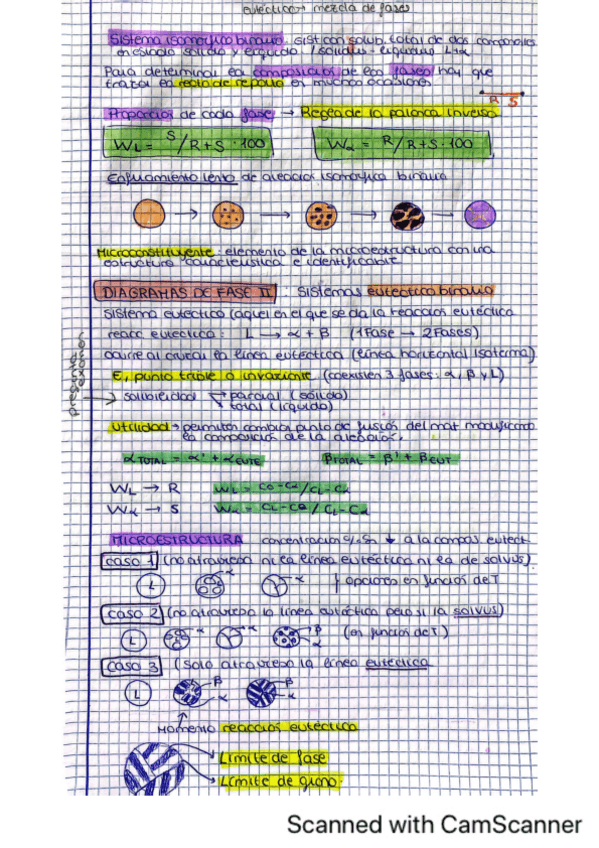 eutéctico → mezcla de fases
Sistema isomorfico binario: sist con solub. total de dos componentes
en estado solido y líquido / solidus - liquidus L+α
Para determinar la composición de las fases hay que
trazar la recta de reparto en muchas ocasiones
R S
Proporción de cada fase → Regla de la palanca inversa
WL = S/R+S · 100
Wα = R/R+S · 100
Enfriamiento lento de aleación isomorfica binaria
Microconstituyente: elemento de la microestructura con una
estructura característica e identificable
DIAGRAMAS DE FASE II : sistemas eutéctico binario
Sistema eutéctico (aquel en el que se da la reacción eutéctica
reacc eutectica: L → α + β (1 Fase → 2 Fases)
ocurre al cruzar la línea eutéctica (línea horizontal isoterma)
E, punto triple o invariante (coexisten 3 fases: α, β y L)
pregunta examen
→ solubilidad parcial (sólido)
total (líquido)
Utilidad → permiten cambiar punto de fusión del mat modificando
la composición de la aleación.
α TOTAL = α' + α EUTE
β TOTAL = β' + β EUT
WL → R WL = C0-Cα/CL-Cα
Wα → S Wα = CL-C0/CL-Cα
MICROESTRUCTURA concentración %Sn ↓ a la compos. eutect
caso 1 (no atraviesa ni la línea eutéctica ni la de solvus)
L α α } opciones en función de T
caso 2 (no atraviesa la línea eutéctica pero si la solvus)
L α α β α (en función de T)
caso 3 (solo atraviesa la línea eutéctica
L β α
Momento reacción eutéctica
Límite de fase
Límite de grano
Scanned with CamScanner